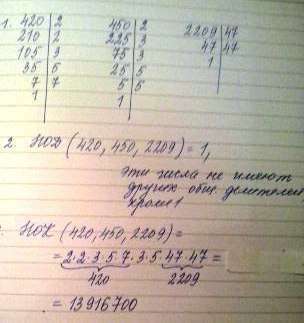 1. 420 | 2   450 | 2   2209 | 47
210 | 2   225 | 3   47 | 47
105 | 3   75 | 3   1
35 | 5   25 | 5
7 | 7   5 | 5
1   1
2. НОД (420, 450, 2209) = 1,
эти числа не имеют
других общ. делителей,
кроме 1
НОК (420, 450, 2209) =
= 2·2·3·5·7·3·5·47·47 =
420   2209
= 13916700